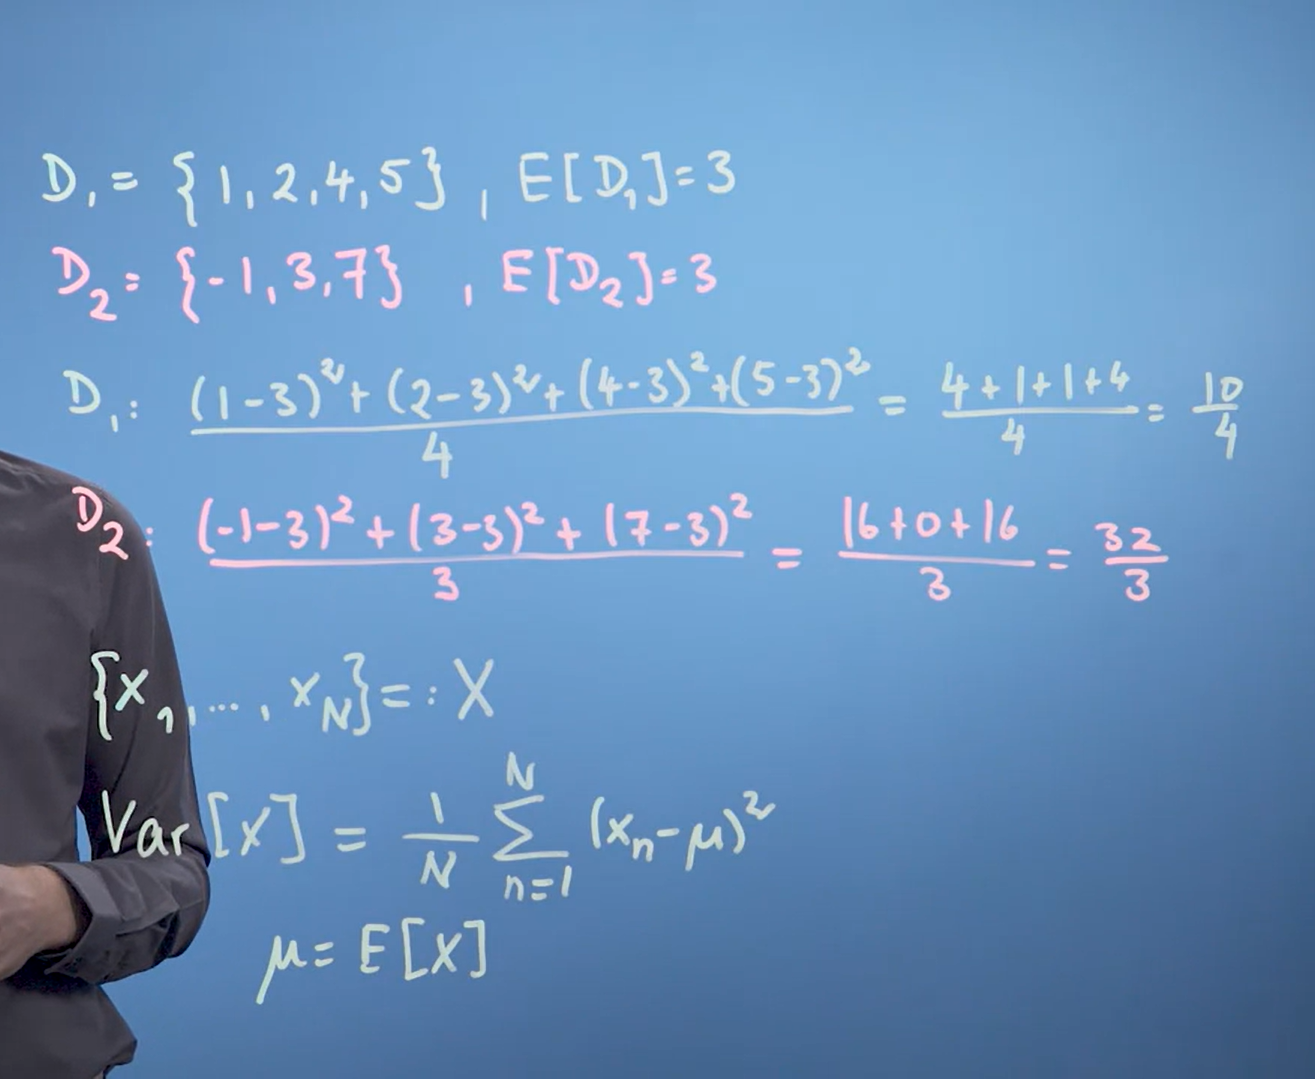 D₁ = {1, 2, 4, 5} , E[D₁] = 3
D₂ = {-1, 3, 7} , E[D₂] = 3
D₁: ((1-3)² + (2-3)² + (4-3)² + (5-3)²)/4 = (4+1+1+4)/4 = 10/4
D₂: ((-1-3)² + (3-3)² + (7-3)²)/3 = (16+0+16)/3 = 32/3
{x₁, ..., x_N} =: X
Var[X] = 1/N ∑_{n=1}^{N} (xₙ - μ)²
μ = E[X]